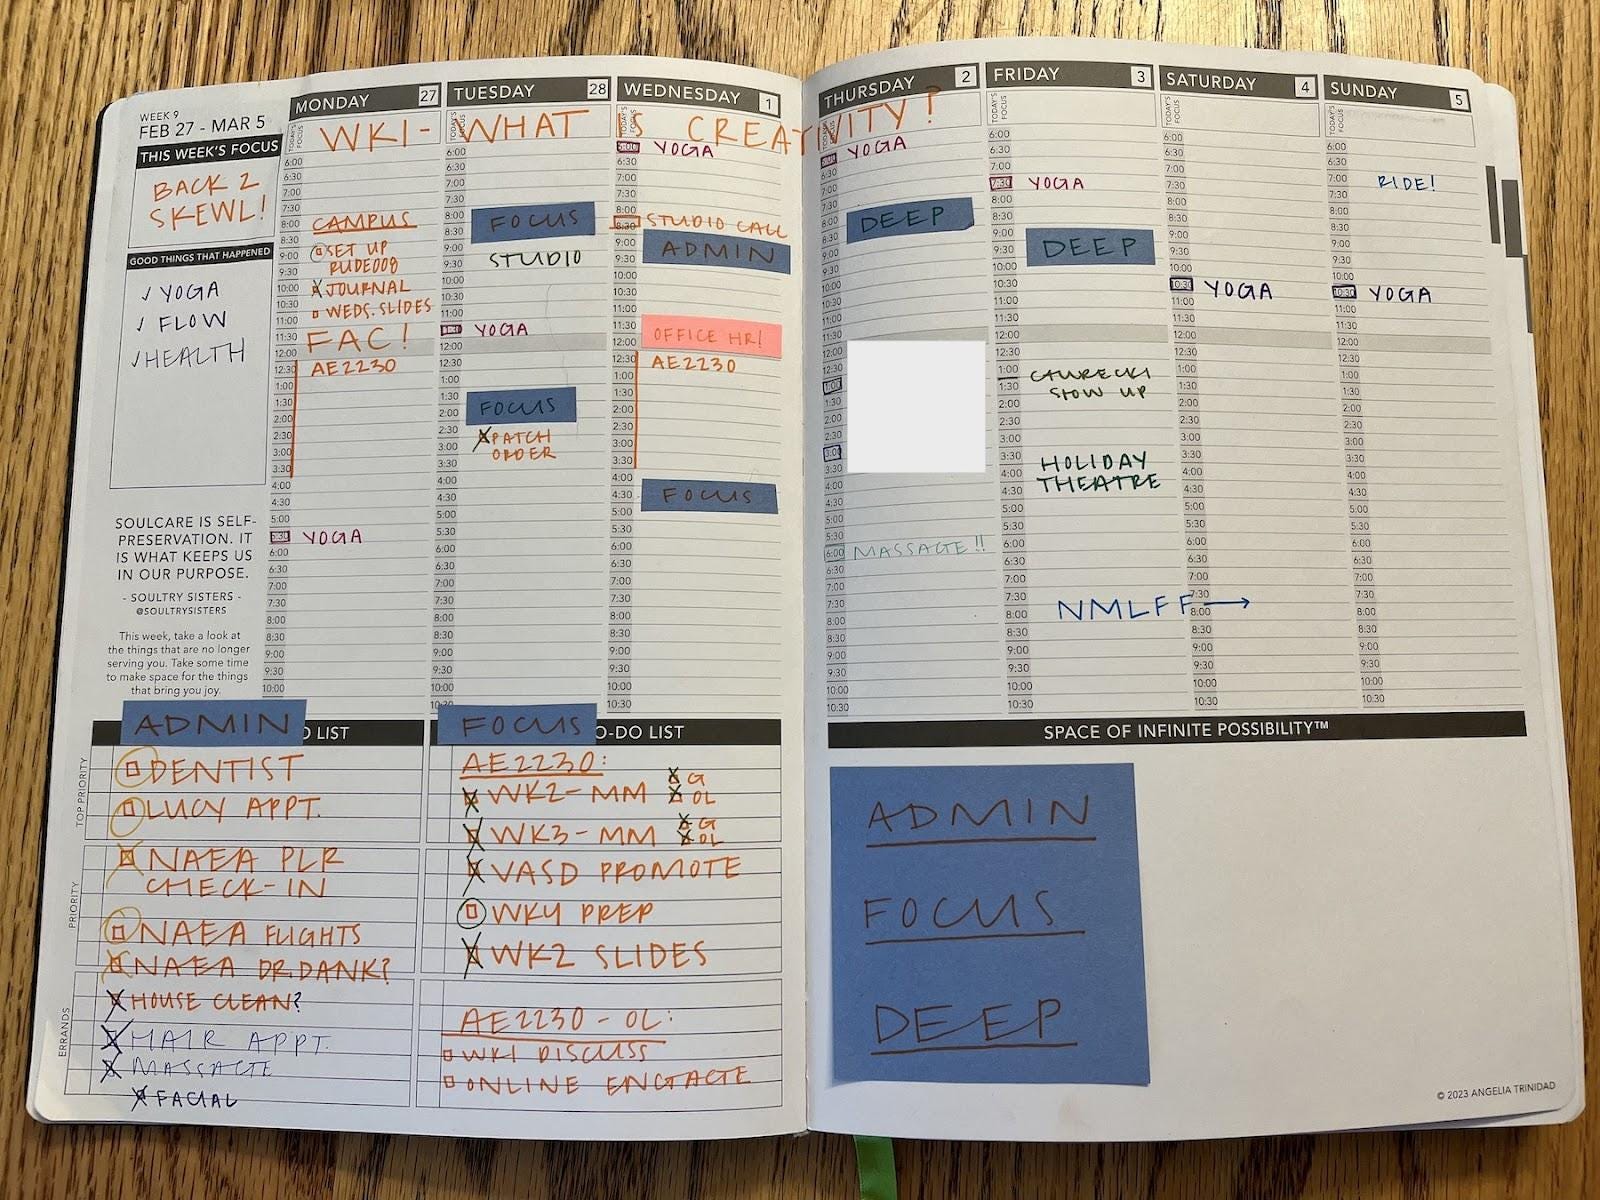 WEEK 9
FEB 27 - MAR 5
THIS WEEK'S FOCUS
BACK 2
SKEWL!
GOOD THINGS THAT HAPPENED
✓ YOGA
✓ FLOW
✓ HEALTH
SOULCARE IS SELF-
PRESERVATION. IT
IS WHAT KEEPS US
IN OUR PURPOSE.
- SOULTRY SISTERS -
@SOULTRYSISTERS
This week, take a look at
the things that are no longer
serving you. Take some time
to make space for the things
that bring you joy.
WK1 - WHAT IS CREATIVITY?
MONDAY 27
TODAY'S FOCUS
6:00
6:30
7:00
7:30
8:00 CAMPUS
8:30 SET UP
9:00 RUDE008
9:30
10:00 JOURNAL
10:30 WEDS. SLIDES
11:00
11:30 FAC!
12:00
12:30 AE2230
1:00
1:30
2:00
2:30
3:00
3:30
4:00
4:30
5:00
5:30 YOGA
6:00
6:30
7:00
7:30
8:00
8:30
9:00
9:30
10:00
TUESDAY 28
TODAY'S FOCUS
6:00
6:30
7:00
7:30
8:00 FOCUS
8:30
9:00 STUDIO
9:30
10:00
10:30
11:00
YOGA
12:00
12:30
1:00
1:30
2:00 FOCUS
2:30 PATCH
3:00 ORDER
3:30
4:00
4:30
5:00
5:30
6:00
6:30
7:00
7:30
8:00
8:30
9:00
9:30
10:00
10:30
WEDNESDAY 1
TODAY'S FOCUS
6:00 YOGA
6:30
7:00
7:30
8:00
8:30 STUDIO CALL
9:00 ADMIN
9:30
10:00
10:30
11:00
11:30 OFFICE HR!
12:00
12:30 AE2230
1:00
1:30
2:00
2:30
3:00
3:30
4:00
4:30 FOCUS
5:00
5:30
6:00
6:30
7:00
7:30
8:00
8:30
9:00
9:30
10:00
10:30
THURSDAY 2
TODAY'S FOCUS
YOGA
6:30
7:00
7:30
8:00 DEEP
8:30
9:00
9:30
10:00
10:30
11:00
11:30
12:00
12:30
1:00
1:30
2:00
2:30
3:00
3:30
4:00
4:30
5:00
5:30
6:00 MASSAGE!!
6:30
7:00
7:30
8:00
8:30
9:00
9:30
10:00
10:30
FRIDAY 3
TODAY'S FOCUS
6:00
6:30
7:00
7:30 YOGA
8:00
8:30
9:00 DEEP
9:30
10:00
10:30
11:00
11:30
12:00
12:30
1:00
1:30 SIOW UP
2:00
2:30
3:00
3:30 HOLIDAY
4:00 THEATRE
4:30
5:00
5:30
6:00
6:30
7:00
7:30
8:00 NMLFF →
8:30
9:00
9:30
10:00
10:30
SATURDAY 4
TODAY'S FOCUS
6:00
6:30
7:00
7:30
8:00
8:30
9:00
9:30
10:00
10:30 YOGA
11:00
11:30
12:00
12:30
1:00
1:30
2:00
2:30
3:00
3:30
4:00
4:30
5:00
5:30
6:00
6:30
7:00
7:30
8:00
8:30
9:00
9:30
10:00
10:30
SUNDAY 5
TODAY'S FOCUS
6:00
6:30
7:00 RIDE!
7:30
8:00
8:30
9:00
9:30
10:00
10:30 YOGA
11:00
11:30
12:00
12:30
1:00
1:30
2:00
2:30
3:00
3:30
4:00
4:30
5:00
5:30
6:00
6:30
7:00
7:30
8:00
8:30
9:00
9:30
10:00
10:30
ADMIN
O LIST
TOP PRIORITY
DENTIST
LUCY APPT.
PRIORITY
NAEA PLR
CHECK-IN
NAEA FLIGHTS
NAEA DR. DANK?
ERRANDS
HOUSE CLEAN?
HAIR APPT.
MASSAGE
FACIAL
FOCUS
O-DO LIST
AE2230:
WK2-MM G
OL
WK3-MM G
OL
VASD PROMOTE
WK4 PREP
WK2 SLIDES
AE2230 - OL:
WK1 DISCUSS
ONLINE ENGAGE
SPACE OF INFINITE POSSIBILITY™
ADMIN
FOCUS
DEEP
© 2023 ANGELIA TRINIDAD